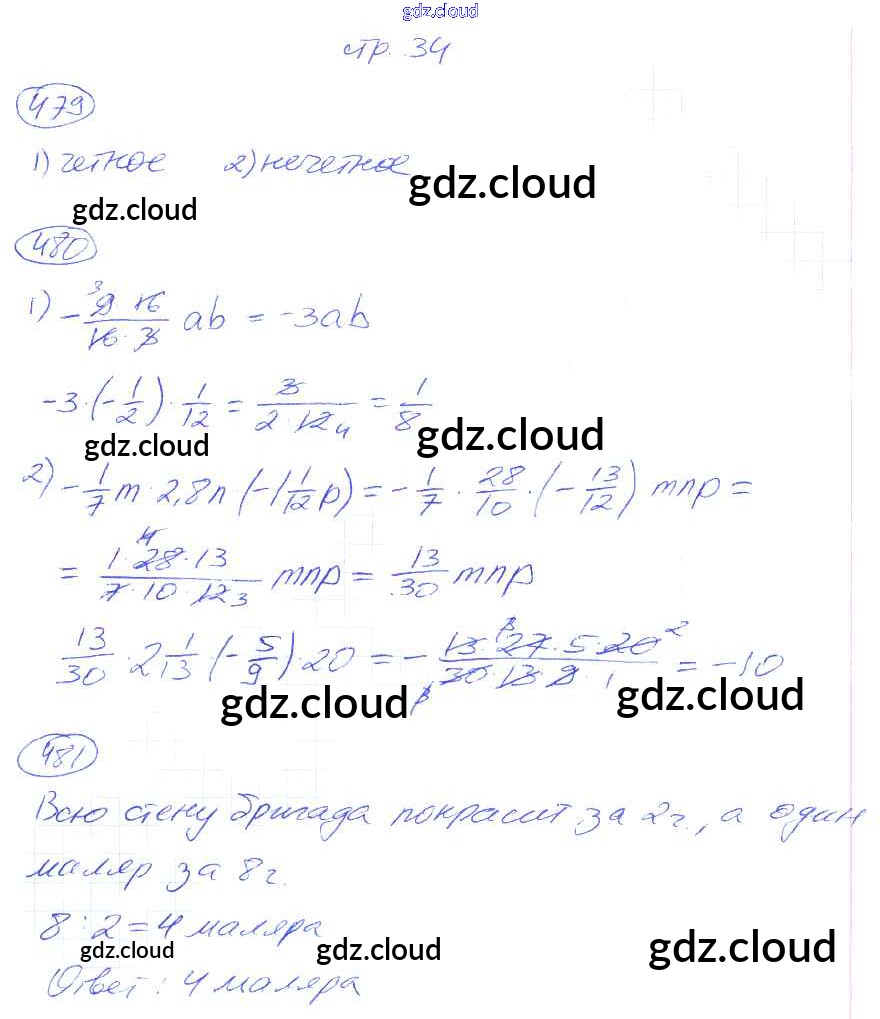 gdz.cloud
стр. 34
479
1) четное 2) нечетное
gdz.cloud
gdz.cloud
480
1) - 9·16/16·3 ab = -3ab
3
-3·(-1/2)·1/12 = 3/2·12 4 = 1/8
gdz.cloud
gdz.cloud
2) -1/7 m·2,8n (-1 1/12 p) = -1/7 · 28/10 · (-13/12) mnp =
4
= 1·28·13/7·10·12 3 mnp = 13/30 mnp
13/30 · 2 1/13 (-5/9)·20 = - 13·27·5·20 2/30·13·9·1 = -10
gdz.cloud
gdz.cloud
481
Всю стену бригада покрасит за 2г., а один
маляр за 8г.
8 : 2 = 4 маляра
gdz.cloud
gdz.cloud
gdz.cloud
Ответ: 4 маляра